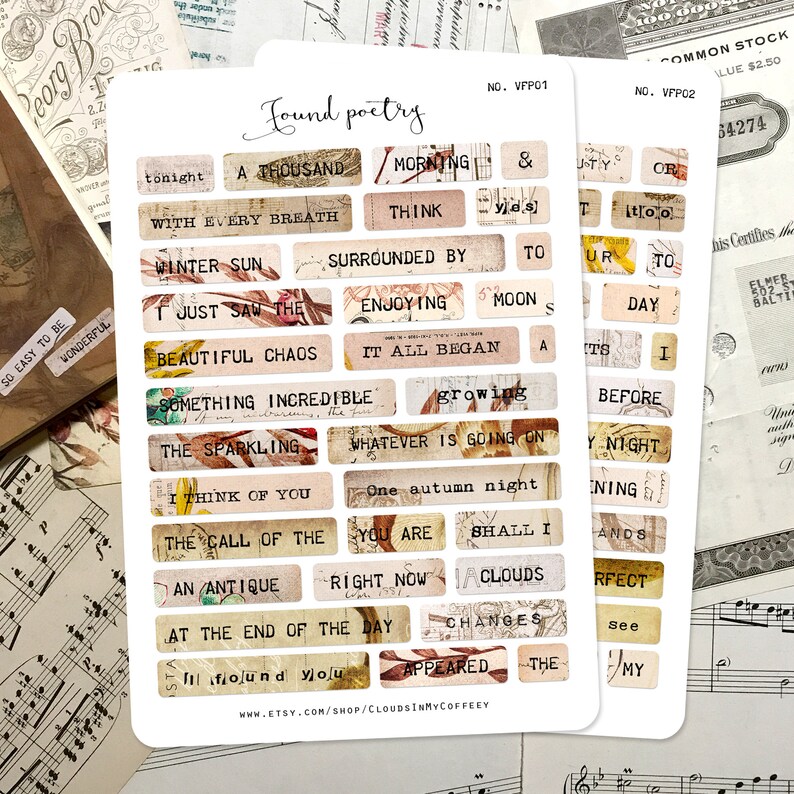 Georg Brok
COMMON STOCK
VALUE $2.50
64274
his Certifies tha
ELMER
502 ST
BALTI
owns
SO EASY TO BE
WONDERFUL
NO. VFP01
Found poetry
tonight A THOUSAND MORNING &
WITH EVERY BREATH THINK yes
WINTER SUN SURROUNDED BY TO
I JUST SAW THE ENJOYING MOON S
BEAUTIFUL CHAOS IT ALL BEGAN A
SOMETHING INCREDIBLE growing
THE SPARKLING WHATEVER IS GOING ON
I THINK OF YOU One autumn night
THE CALL OF THE YOU ARE SHALL I
AN ANTIQUE RIGHT NOW CLOUDS
AT THE END OF THE DAY CHANGES
I found you APPEARED THE
WWW.ETSY.COM/SHOP/CLOUDSINMYCOFFEEY
NO. VFP02
UTY OR
T too
UR TO
DAY
ITS I
BEFORE
Y NIGHT
ENING
ANDS
RFECT
see
MY